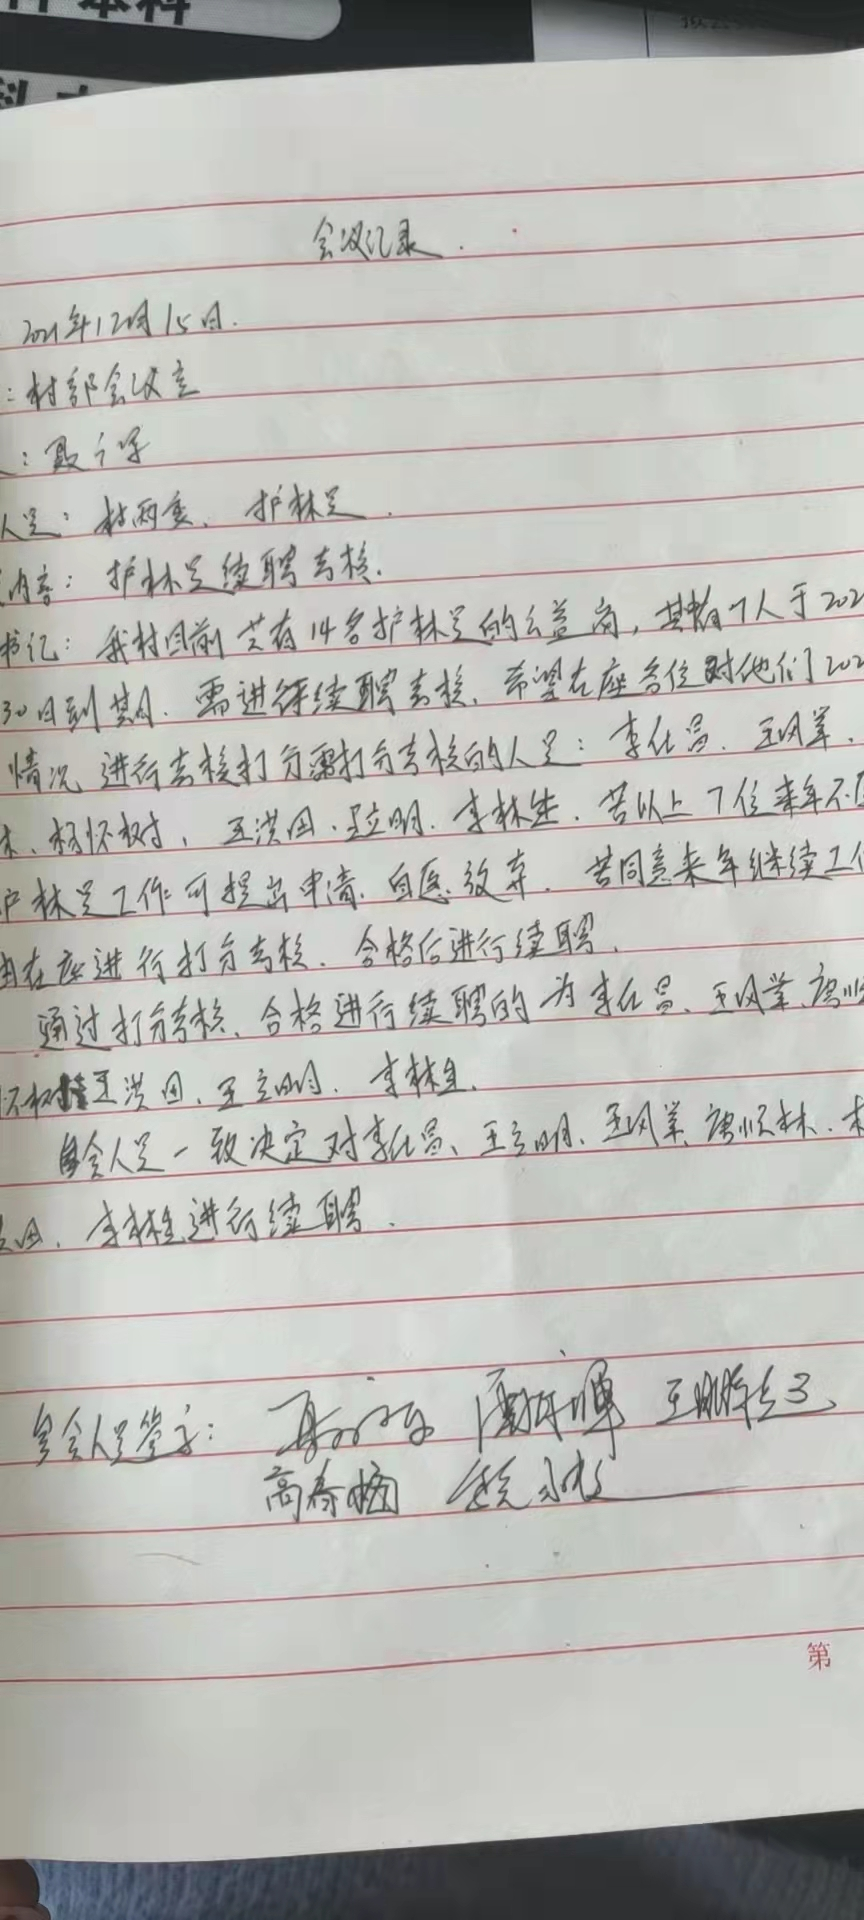 本科
会议记录.
2021年12月15日.
:村部会议室
人员:村两委、护林员.
内容:护林员续聘考核.
书记:我村目前共有14名护林员的公益岗,其中有7人于202
30日到期.需进行续聘考核、希望在座各位对他们202
情况进行考核打分需打分考核的人员:李仕昌、王凤羊、
、杨怀树、王洪田、王立明、李林生.若以上7位来年不
护林员工作可提出申请.自愿放弃.若同意来年继续工作
由在座进行打分考核.合格后进行续聘.
通过打分考核、合格进行续聘的为李仕昌、王凤羊、唐顺
怀树、王洪田、王立明、李林生.
与会人员一致决定对李仕昌、王立明、王凤羊、唐顺林、
田、李林生进行续聘.
与会人员签字:
高春梅
第